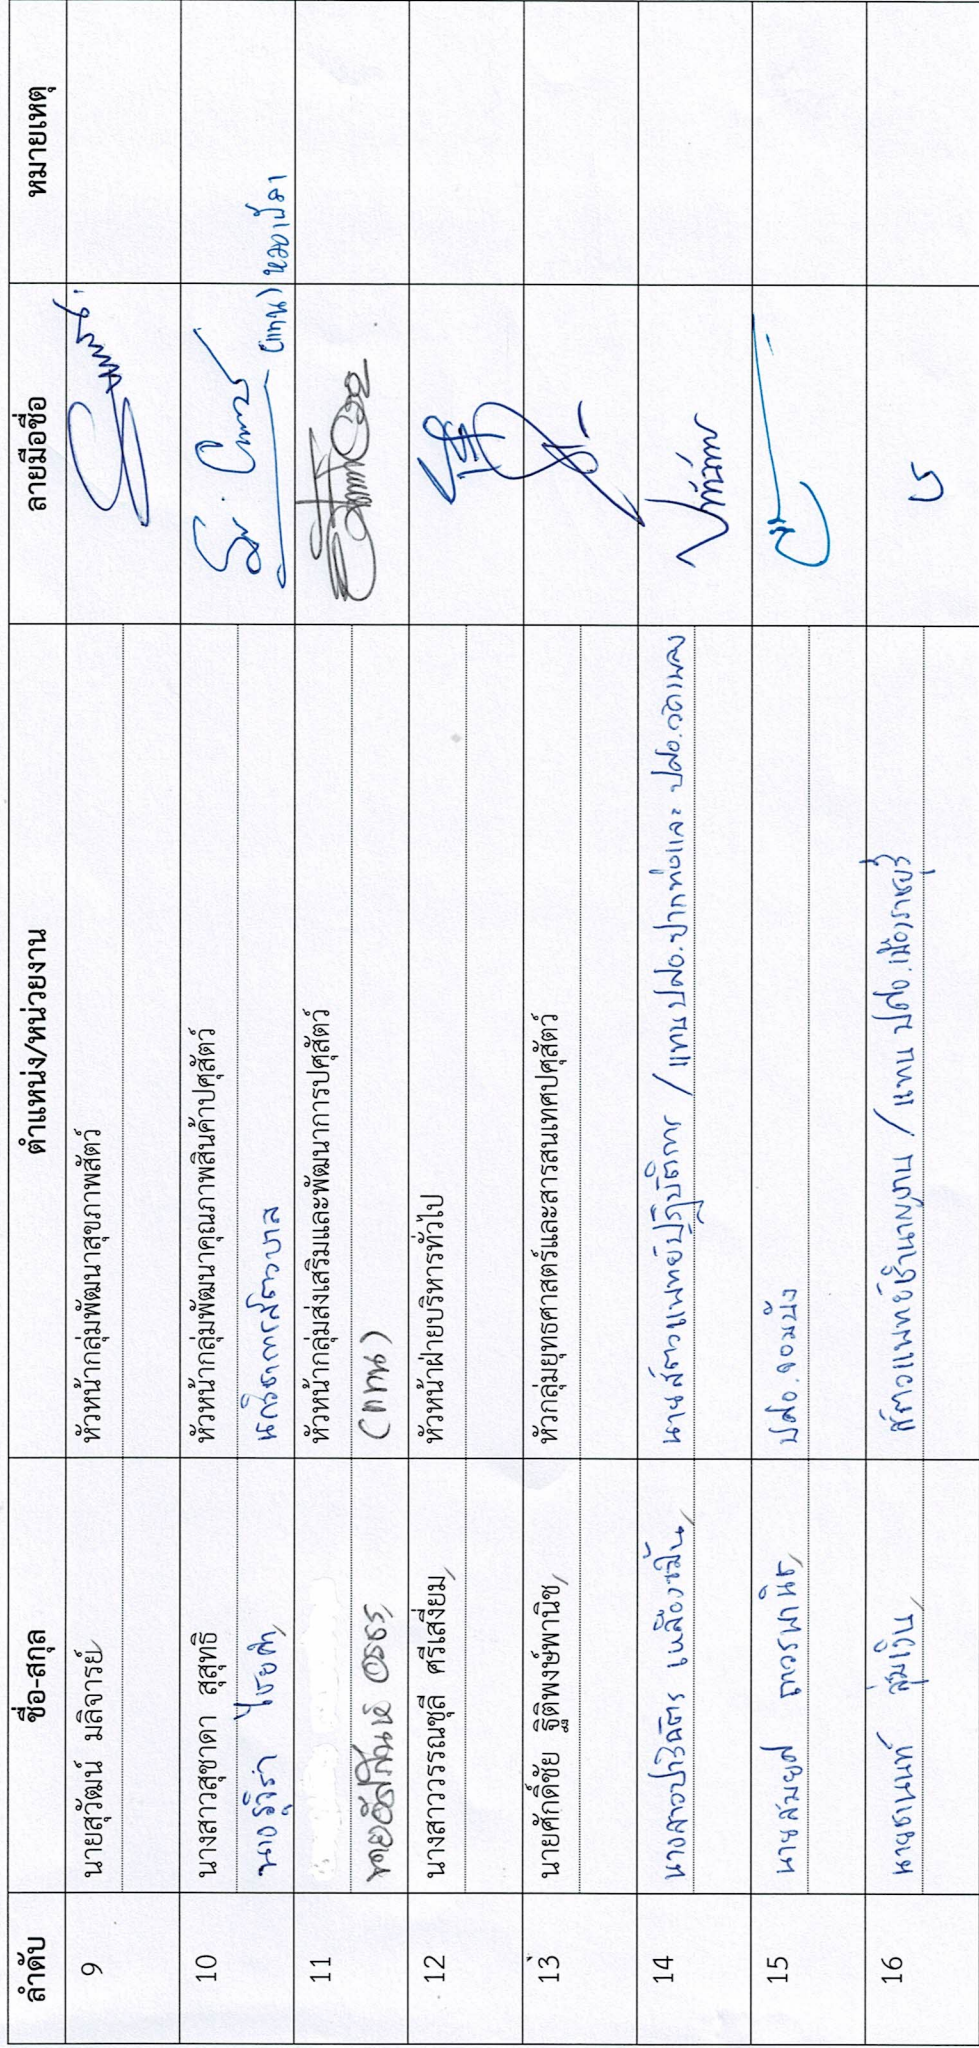 ลำดับ ชื่อ-สกุล ตำแหน่ง/หน่วยงาน ลายมือชื่อ หมายเหตุ
9 นายสุวัฒน์ มลิจารย์ หัวหน้ากลุ่มพัฒนาสุขภาพสัตว์
10 นางสาวสุชาดา สุสุทธิ หัวหน้ากลุ่มพัฒนาคุณภาพสินค้าปศุสัตว์
นางรุจิรา ไชยคำ นักวิชาการสัตวบาล (แทน)
11 หัวหน้ากลุ่มส่งเสริมและพัฒนาการปศุสัตว์
(แทน)
12 นางสาววรรณชุลี ศรีเสงี่ยม หัวหน้าฝ่ายบริหารทั่วไป
13 นายศักดิ์ชัย ฐิติพงษ์พานิช หัวกลุ่มยุทธศาสตร์และสารสนเทศปศุสัตว์
14 นางสาวปาริฉัตร เหลืองขมิ้น นายสัตวแพทย์ปฏิบัติการ / แทน ปศอ.ปากท่อและ ปศอ.วัดเพลง
15 นายสมยศ ถาวรพานิช ปศอ.จอมบึง
16 นายชานนท์ สุ่มเงิน สัตวแพทย์ชำนาญงาน / แทน ปศอ.เมืองราชบุรี